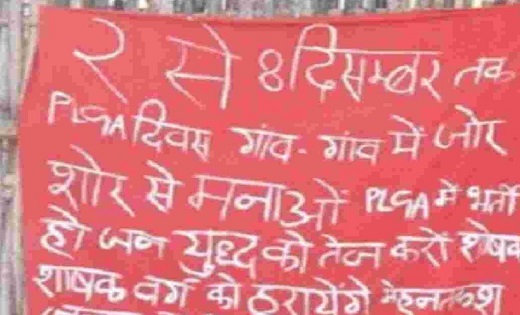 २ से ८ दिसम्बर तक
PLGA दिवस गांव-गांव में जोर
शोर से मनाओं PLGA में भर्ती
हो जन युध्द को तेज करो शोषक
शाषक वर्ग को हरायेंगे मेहनतकश